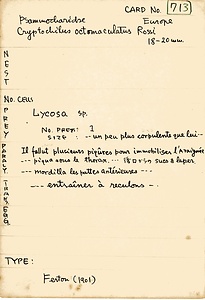 CARD No. 713
Psammocharidae Europe
Cryptochilus octomaculatus Rossi
18-20 mm.
NEST
No. CELLS
PREY
Lycosa sp.
No. PREY: 1
SIZE: -- un peu plus corpulente que lui--
PARALY.
Il fallut plusieurs piqûres pour immobiliser l'araignée
--- piqua sous le thorax. ---
--- mordilla les pattes antérieures ---
TRANS.
--- entraîner à reculons --.
EGG
TYPE:
Ferton (1901)